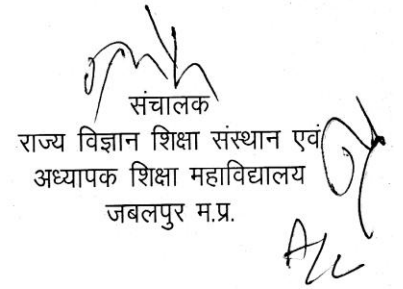 संचालक
राज्य विज्ञान शिक्षा संस्थान एवं
अध्यापक शिक्षा महाविद्यालय
जबलपुर म.प्र.